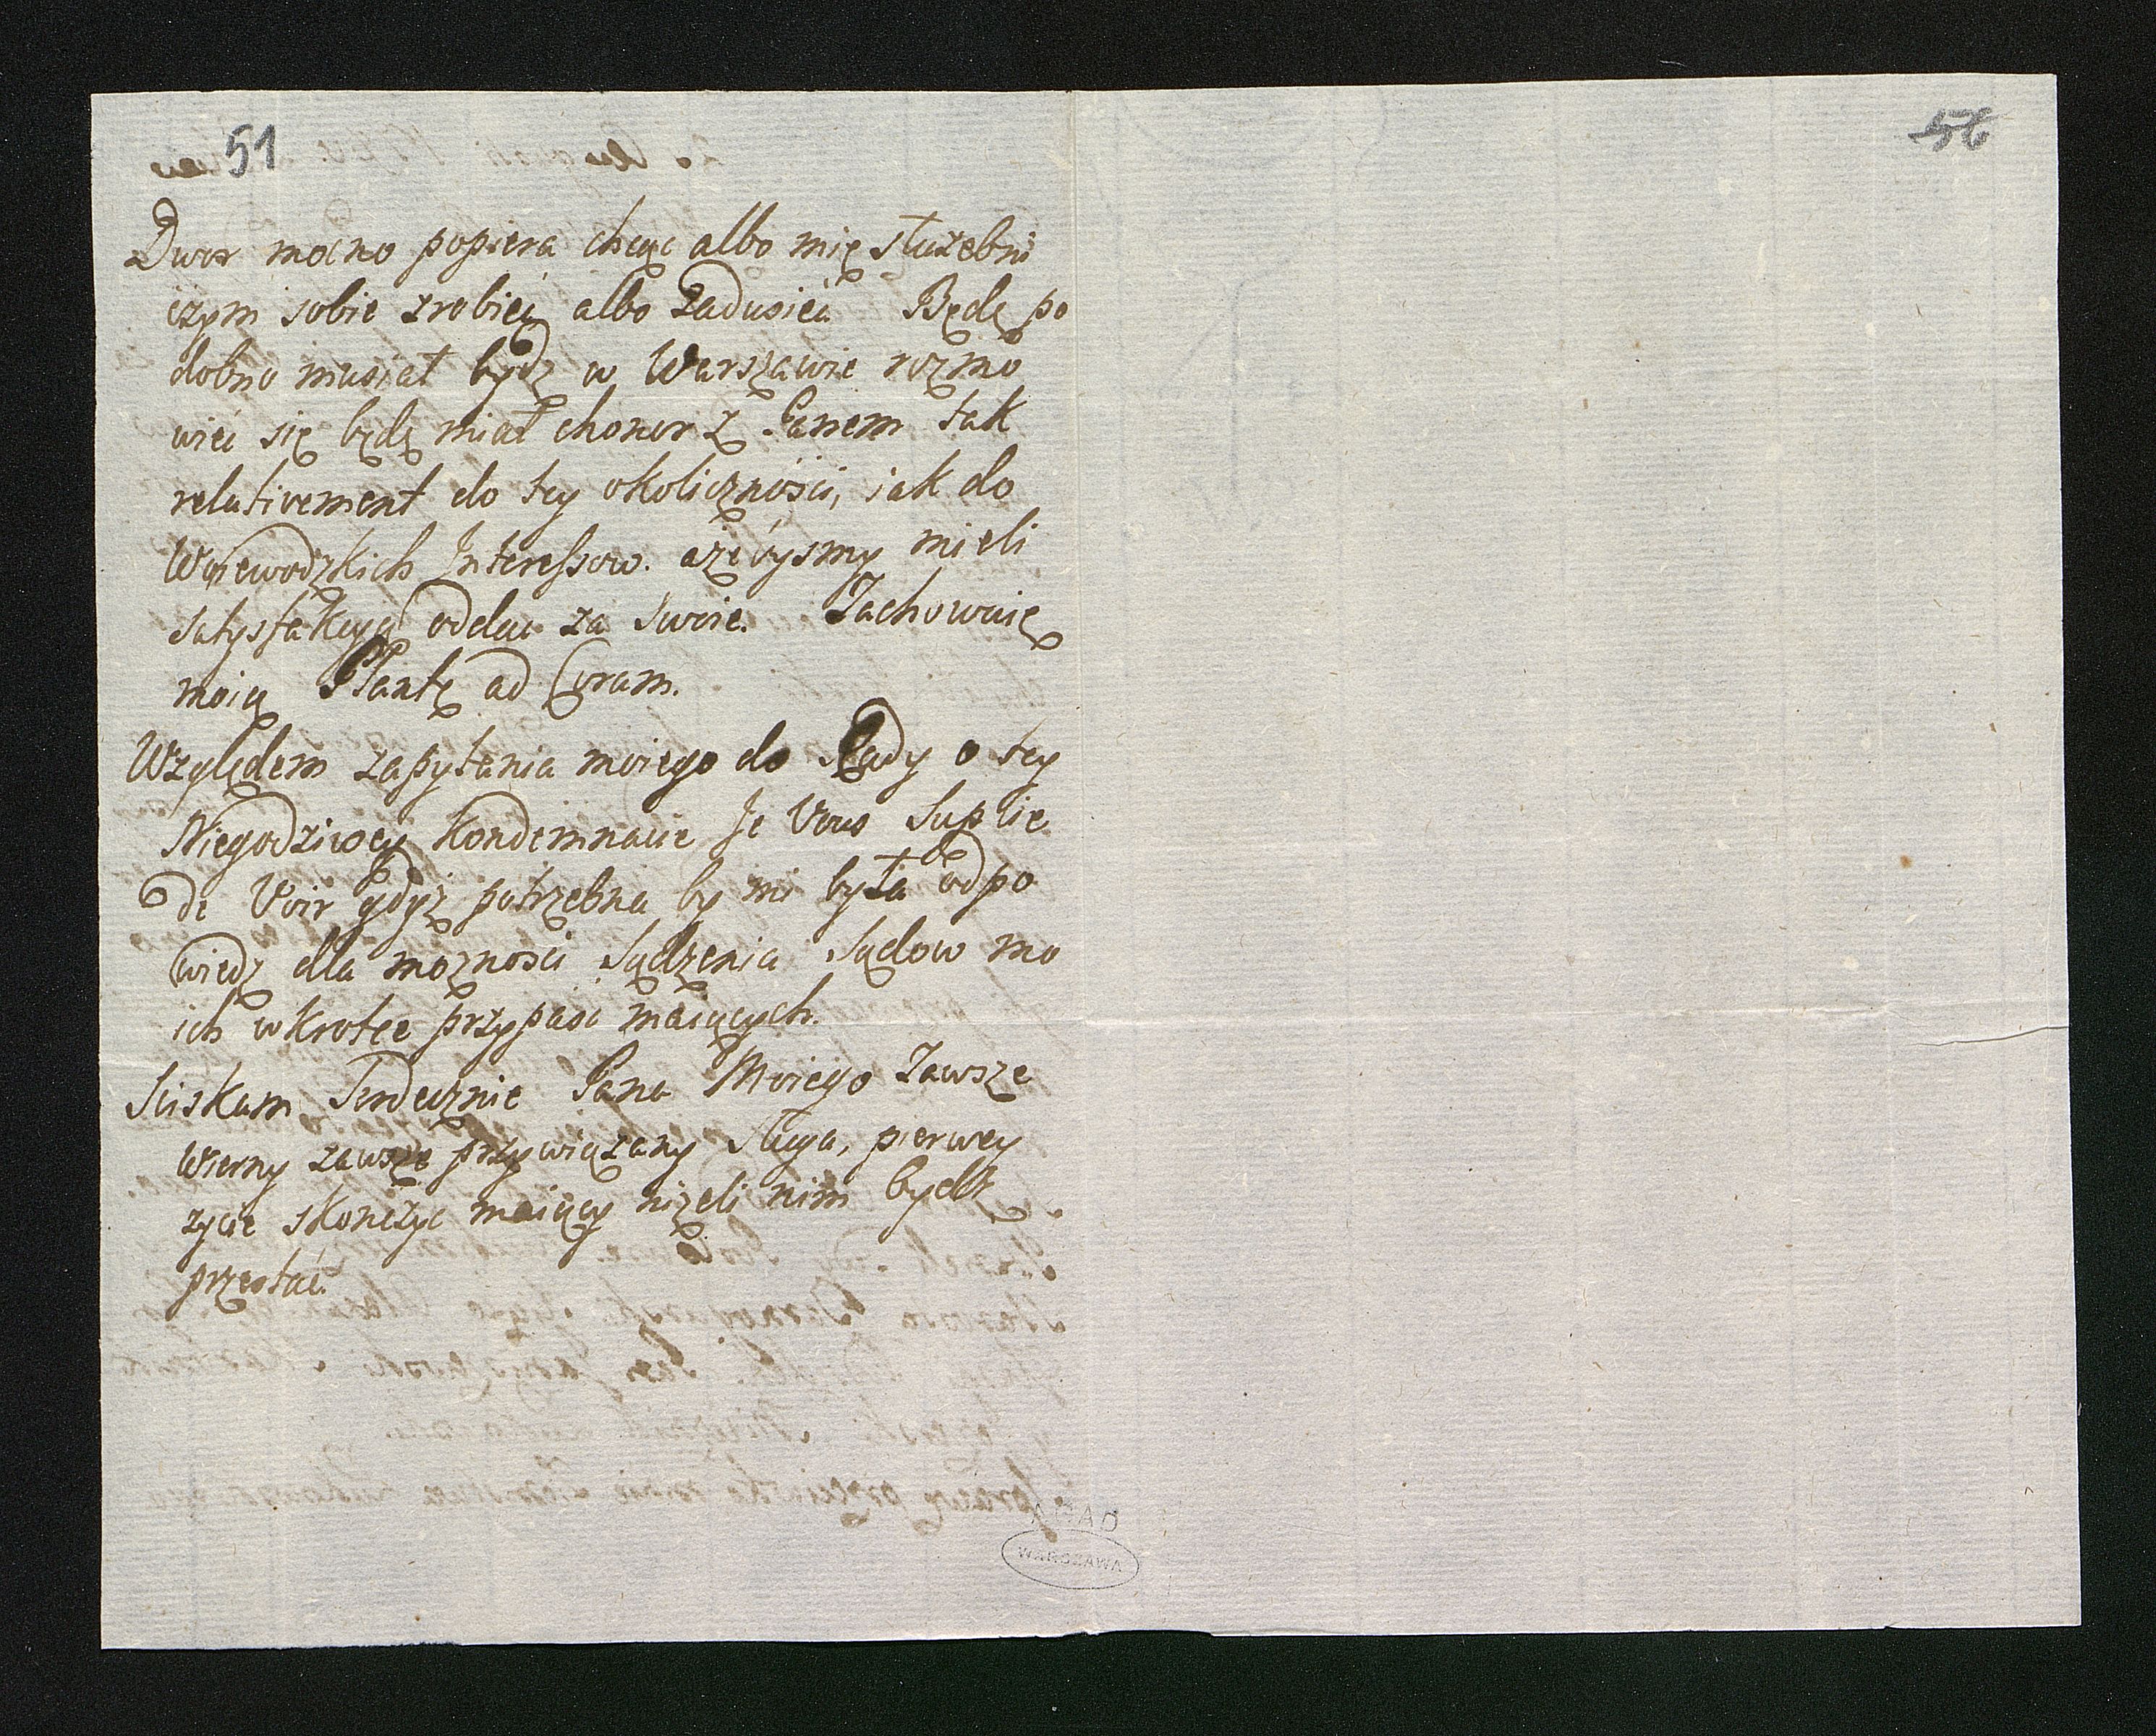 51
56
Dwor mocno popiera chcąc albo mię służebni
czym sobie zrobieć albo zadusieć Będę po
dobno musiał bydz w Warszawie rozmo
wieć się będę miał chonor z Panem tak
relativement do tey okoliczności, iak do
Woiewodzkich Interessow. ażebysmy mieli
satysfakcyą oddac za swoie. Zachowuię
moią Plantę ad Coram.
Względem zapytania moiego do Rady o tey
Niegodziwey Kondemnacie Je Vous Suplie
de Voir gdyż potrzebna by mi była odpo
wiedz dla moznosci Sądzenia Sądow mo
ich wkrotce przypaść maiących.
Sciskam Serdecznie Pana Moiego Zawsze
Wierny zawsze przywiązany Sługa, pierwey
zycie skonczyc maiący niżeli nim bydz
przestać
AGAD
WARSZAWA